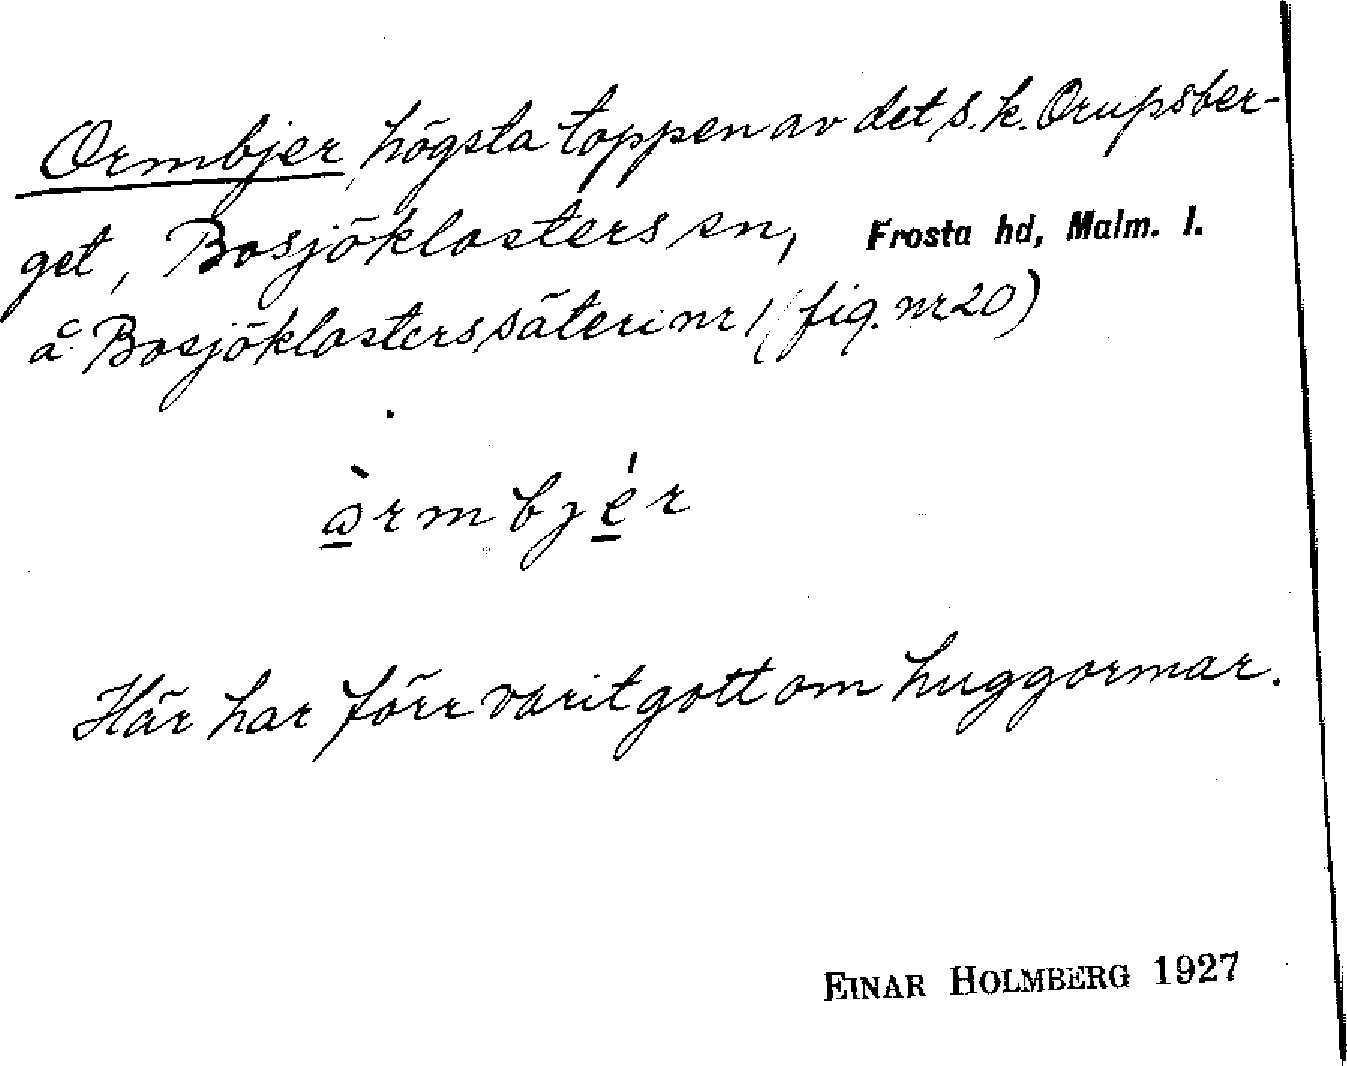 Ormbjer, högsta toppen av det s.k. Orupsber-
get, Bosjöklosters sn, Frosta hd, Malm. l.
å Bosjöklosters säteri nr 1 (fig. nr 20)
ɷ̀rmbjér
Här har förr varit gott om huggormar.
EINAR HOLMBERG 1927